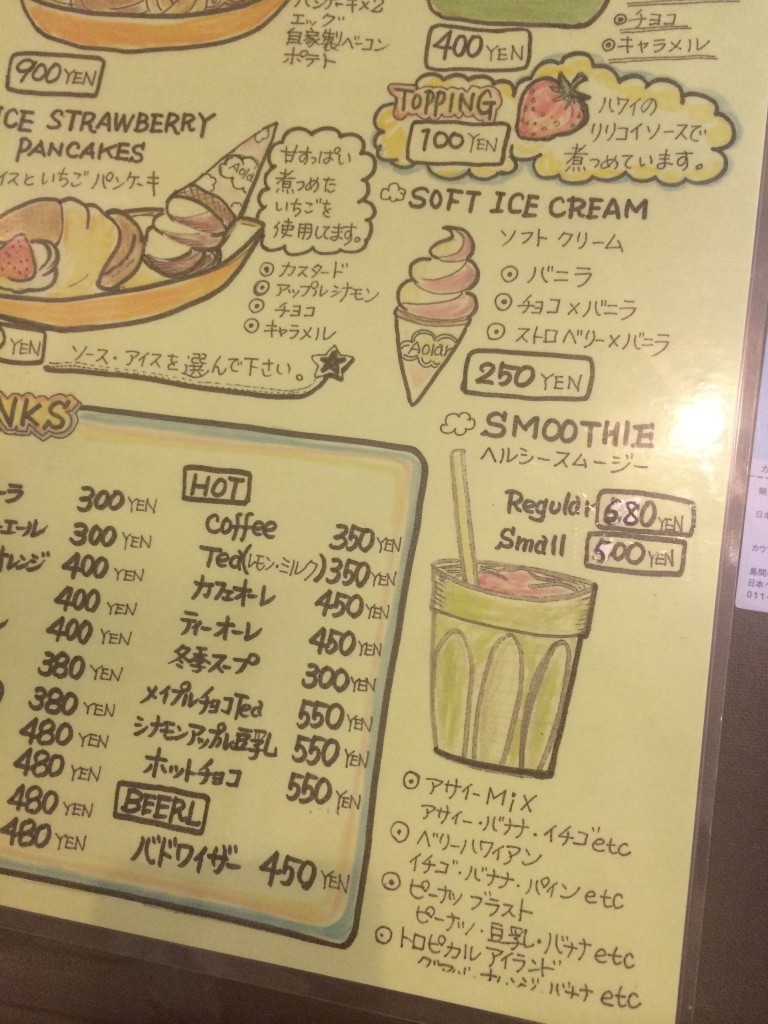 パンケーキ×2
エッグ
自家製ベーコン
ポテト
900 YEN
400 YEN
チョコ
キャラメル
TOPPING
100 YEN
ハワイの
リリコイソースで
煮つめています。
ICE STRAWBERRY
PANCAKES
アイスといちごパンケーキ
甘すっぱい
煮つめた
いちごを
使用してます。
カスタード
アップルシナモン
チョコ
キャラメル
YEN
ソース・アイスを選んで下さい。
SOFT ICE CREAM
ソフトクリーム
バニラ
チョコ×バニラ
ストロベリー×バニラ
250 YEN
NKS
ーラ 300 YEN
エール 300 YEN
オレンジ 400 YEN
400 YEN
400 YEN
380 YEN
380 YEN
480 YEN
480 YEN
480 YEN
480 YEN
HOT
Coffee 350 YEN
Tea(レモン・ミルク) 350 YEN
カフェオーレ 450 YEN
ティーオーレ 450 YEN
冬季スープ 300 YEN
メイプルチョコTea 550 YEN
シナモンアップル豆乳 550 YEN
ホットチョコ 550 YEN
BEERL
バドワイザー 450 YEN
SMOOTHIE
ヘルシースムージー
Regular 680 YEN
Small 500 YEN
アサイーMiX
アサイー・バナナ・イチゴetc
ベリーハワイアン
イチゴ・バナナ・パインetc
ピーナッツブラスト
ピーナッツ・豆乳・バナナetc
トロピカルアイランド
バナナetc